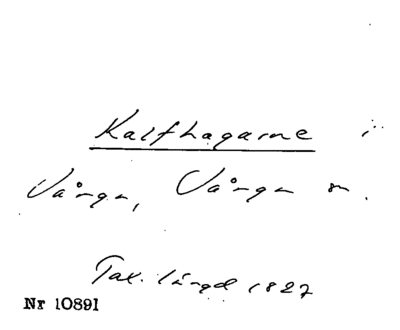 Kalfhagarne i
Vånga, Vånga sn.
Tax. längd 1827
Nr 10891